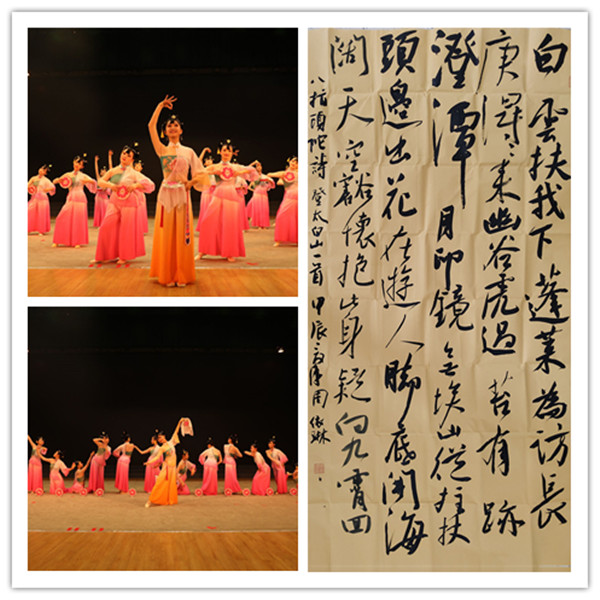 白雲扶我下蓬萊為訪長
庚得々来幽谷虎過苔有跡
澄潭月印鏡無埃山從拄杖
頭邊出花在遊人腳底開海
闊天空豁懷抱此身疑向九霄回
八指頭陀詩登太白山一首甲辰周